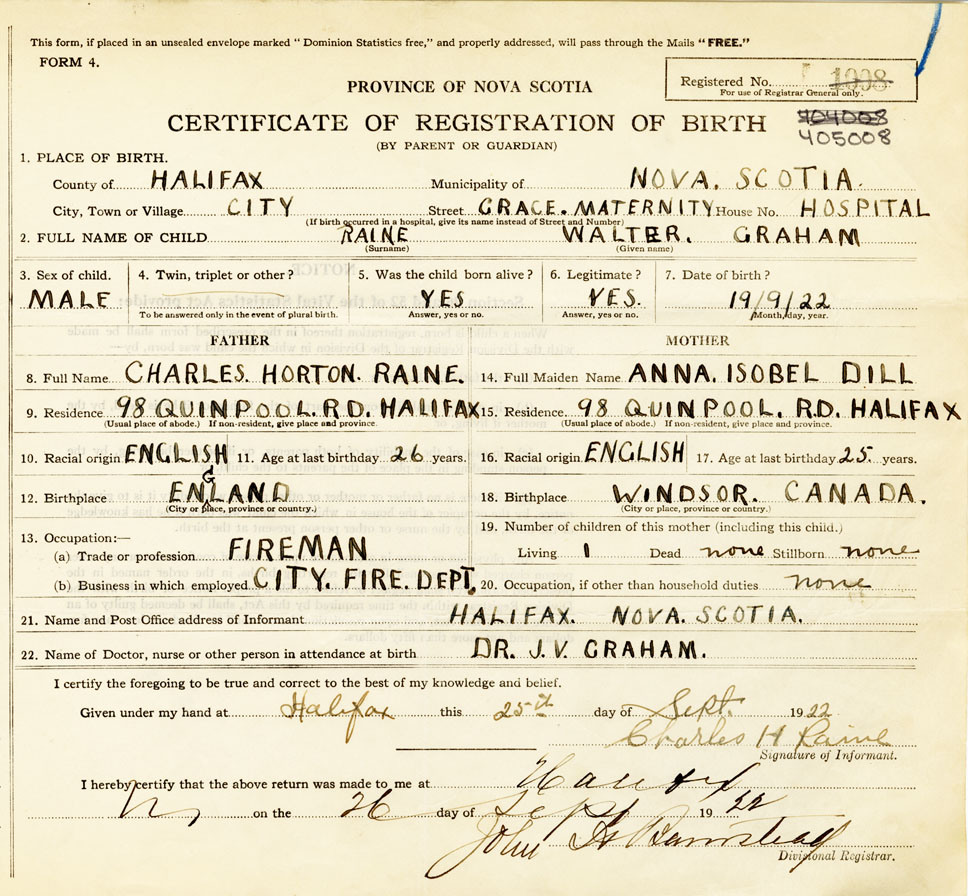 This form, if placed in an unsealed envelope marked “ Dominion Statistics free,” and properly addressed, will pass through the Mails “ FREE.”
FORM 4.
Registered No. 1008
For use of Registrar General only.
PROVINCE OF NOVA SCOTIA
CERTIFICATE OF REGISTRATION OF BIRTH 404008
(BY PARENT OR GUARDIAN) 405008
1. PLACE OF BIRTH.
County of HALIFAX Municipality of NOVA. SCOTIA.
City, Town or Village CITY Street GRACE. MATERNITY House No. HOSPITAL
(If birth occurred in a hospital, give its name instead of Street and Number)
2. FULL NAME OF CHILD RAINE WALTER. GRAHAM
(Surname) (Given name)
3. Sex of child. 4. Twin, triplet or other? 5. Was the child born alive? 6. Legitimate? 7. Date of birth?
MALE YES YES. 19/9/22
To be answered only in the event of plural birth. Answer, yes or no. Answer, yes or no. Month, day, year.
FATHER MOTHER
8. Full Name CHARLES. HORTON. RAINE. 14. Full Maiden Name ANNA. ISOBEL DILL
9. Residence 98 QUINPOOL. RD. HALIFAX 15. Residence. 98 QUINPOOL. RD. HALIFAX
(Usual place of abode.) If non-resident, give place and province. (Usual place of abode.) If non-resident, give place and province.
10. Racial origin ENGLISH 11. Age at last birthday 26 years. 16. Racial origin ENGLISH 17. Age at last birthday 25 years.
12. Birthplace ENGLAND 18. Birthplace WINDSOR. CANADA.
(City or place, province or country.) (City or place, province or country.)
13. Occupation:— 19. Number of children of this mother (including this child.)
(a) Trade or profession FIREMAN Living 1 Dead none Stillborn none
(b) Business in which employed CITY. FIRE. DEPT. 20. Occupation, if other than household duties none
21. Name and Post Office address of Informant HALIFAX. NOVA. SCOTIA.
22. Name of Doctor, nurse or other person in attendance at birth DR. J. V. GRAHAM.
I certify the foregoing to be true and correct to the best of my knowledge and belief.
Given under my hand at Halifax this 25th day of Sept. 1922
Charles H Raine
Signature of Informant.
I hereby certify that the above return was made to me at
on the 26 day of Sept 1922
John
Divisional Registrar.